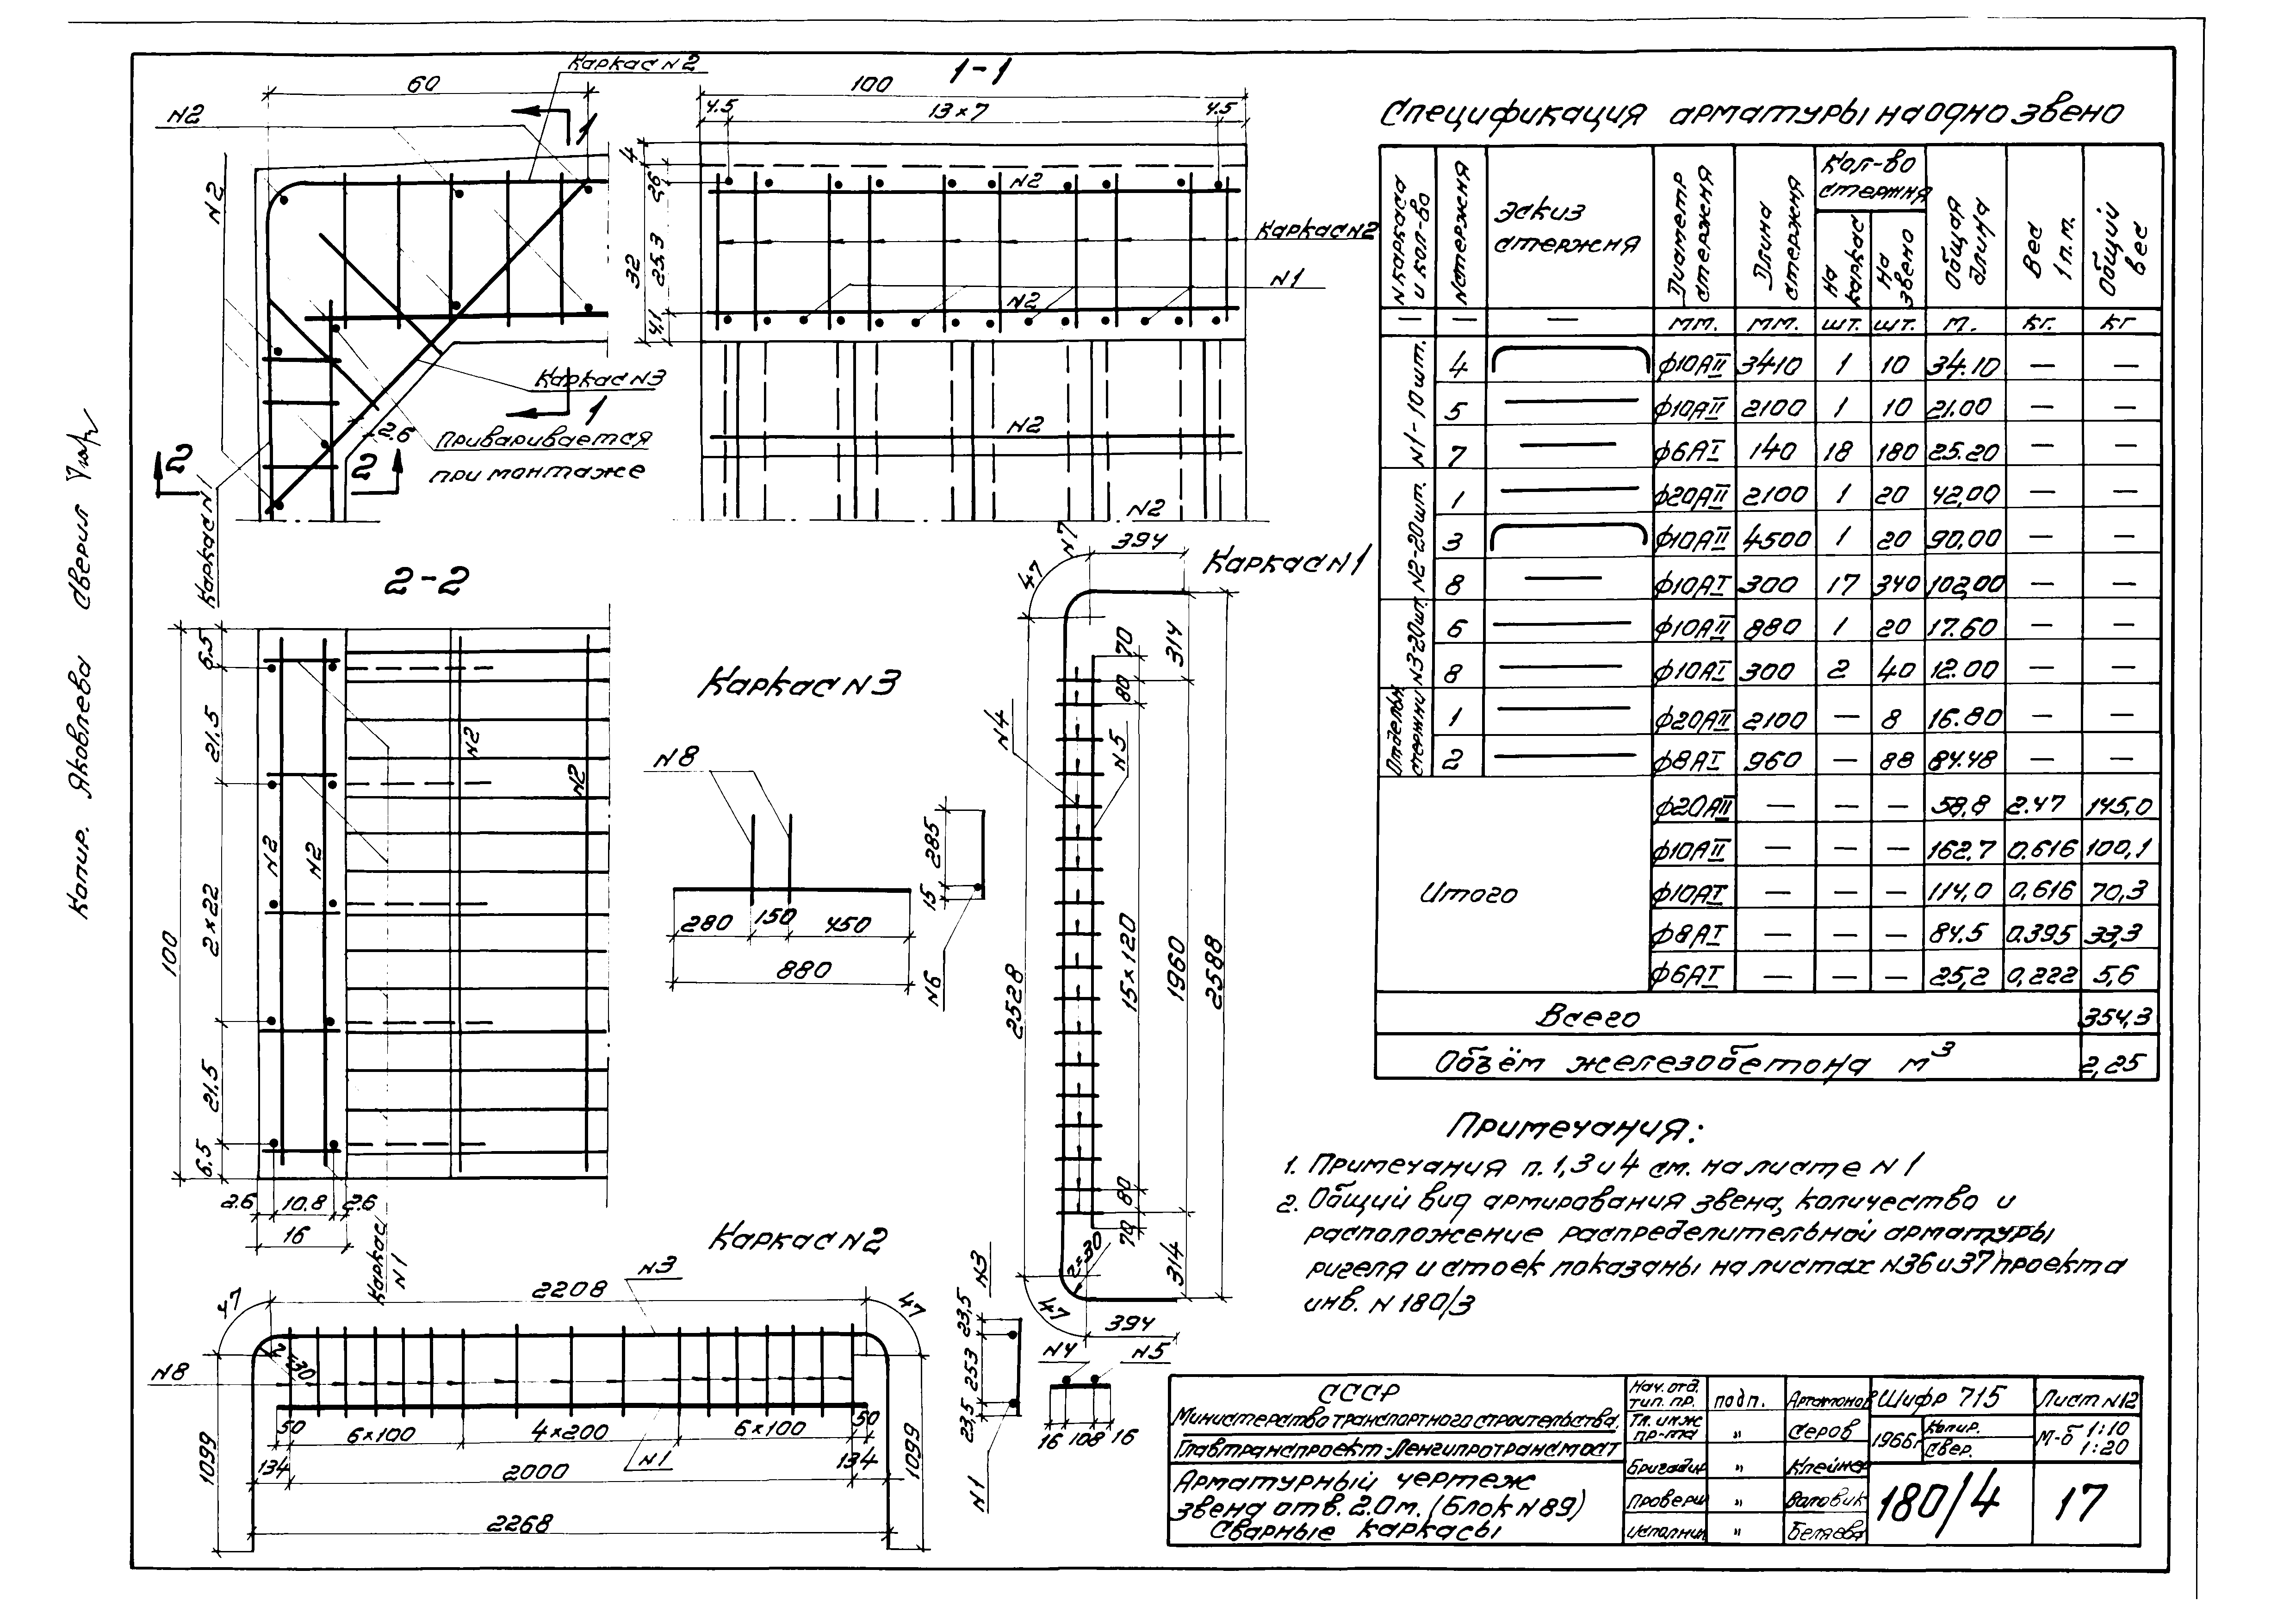 Каркас N2
60
N2
1
N2
Каркас N3
1
2.6
Приваривается
при монтаже
2
2
Каркас N1
1-1
100
4.5
13×7
4.5
4
2,6
25.3
32
4,1
N2
Каркас N2
N2
N1
N2
N2
2-2
100
6.5
21.5
2×22
21.5
6.5
N2
N2
N2
N2
2.6
10.8
2.6
16
Каркас N1
Каркас N3
N8
280
150
450
880
285
15
N6
Каркас N1
394
N7
47
314
70
80
N4
N5
2528
15×120
1960
2588
80
70
314
47
394
N4
N5
16 108 16
Каркас N2
N3
2208
47
47
N8
50
6×100
4×200
6×100
50
134
2000
N1
134
1099
1099
2268
N3
23,5
253
23,5
N1
Спецификация арматуры на одно звено
N каркаса и кол-во
N стержня
Эскиз стержня
Диаметр стержня
Длина стержня
Кол-во стержня
На каркас
На звено
Общая длина
Вес 1 п.м.
Общий вес
— — — мм. мм. шт. шт. м. кг. кг
N1-10 шт.
4 ф10АII 3410 1 10 34.10 — —
5 ф10АII 2100 1 10 21.00 — —
7 ф6АI 140 18 180 25.20 — —
N2-20 шт.
1 ф20АII 2100 1 20 42,00 — —
3 ф10АII 4500 1 20 90,00 — —
8 ф10АI 300 17 340 102,00 — —
N3-20 шт.
6 ф10АII 880 1 20 17.60 — —
8 ф10АI 300 2 40 12.00 — —
Отдельн. стержни
1 ф20АII 2100 — 8 16.80 — —
2 ф8АI 960 — 88 84.48 — —
Итого
ф20АII — — — 58,8 2.47 145,0
ф10АII — — — 162,7 0.616 100,1
ф10АI — — — 114,0 0,616 70,3
ф8АI — — — 84.5 0.395 33,3
ф6АI — — — 25,2 0,222 5,6
Всего 354,3
Объём железобетона м³ 2,25
Примечания:
1. Примечания п. 1,3 и 4 см. на листе N 1
2. Общий вид армирования звена, количество и
расположение распределительной арматуры
ригеля и стоек показаны на листах N36 и 37 проекта
инв. N 180/3
СССР
Министерство транспортного строительства.
Главтранспроект-Ленгипротрансмост
Арматурный чертеж
звена отв. 2.0 м. (Блок N 89)
Сварные каркасы
Нач. отд. тип. пр. подп. Артамонов
Гл. инж пр-та " Серов
Бригадир " Клейнер
Проверил " Воловик
Исполнил " Беляева
Шифр 715
Лист N12
1966г.
Копир.
Свер.
М-б 1:10
1:20
180/4
17
Копир. Яковлева сверил